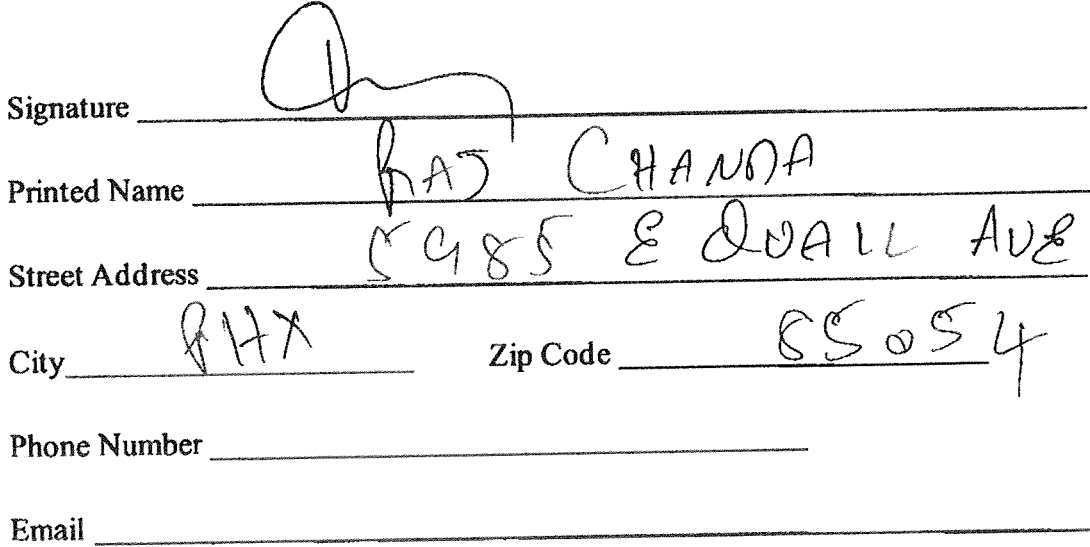 Signature
Printed Name RAJ CHANDA
Street Address 5985 E QUAIL AVE
City PHX Zip Code 85054
Phone Number
Email